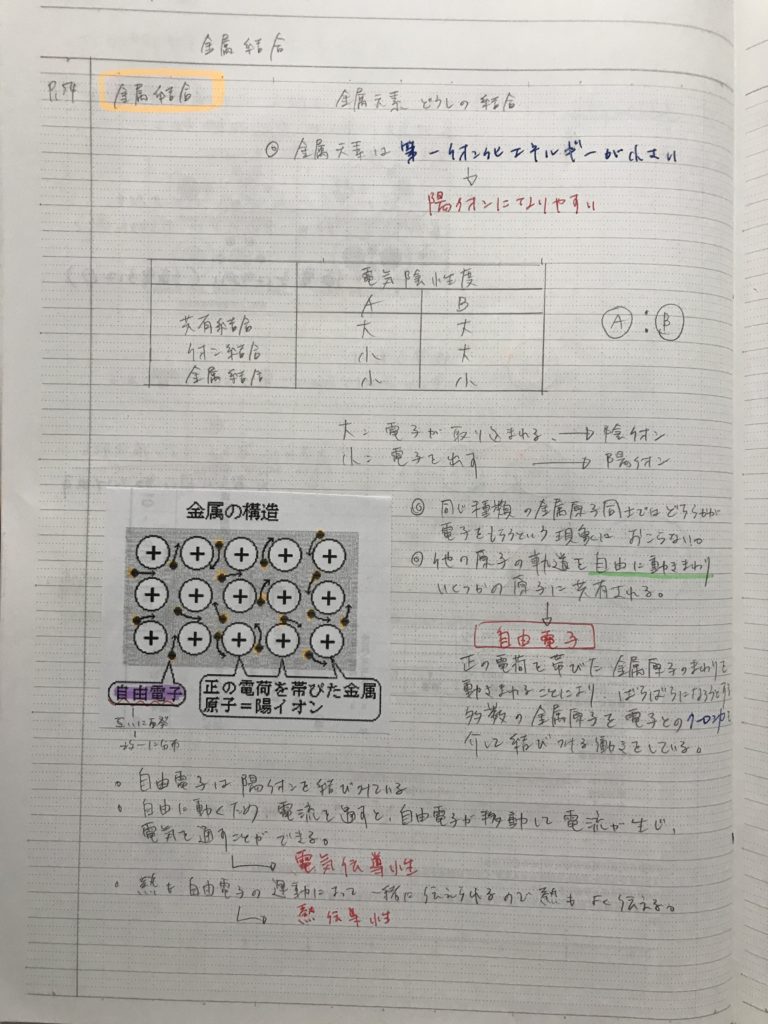 金属結合
P.54 金属結合 金属元素どうしの結合
◎ 金属元素は 第一イオン化エネルギーが小さい
↓
陽イオンになりやすい
電気陰性度
A B
共有結合 大 大
イオン結合 小 大
金属結合 小 小
A : B
大 = 電子が取り込まれる → 陰イオン
小 = 電子を出す → 陽イオン
金属の構造
+ + + + +
+ + + + +
+ + + + +
自由電子
正の電荷を帯びた金属
原子=陽イオン
互いに反発
↓
均一に分布
◎ 同じ種類の金属原子同士ではどちらかが
電子をもらうという現象は おこらない。
◎ 他の原子の軌道を自由に動きまわり
いくつかの原子に共有される。
↓
自由電子
正の電荷を帯びた金属原子のまわりを
動きまわることにより、ばらばらになろうとする
多数の金属原子を電子とのクーロン力を
介して結びつける働きをしている。
○ 自由電子は陽イオンを結びつけている
○ 自由に動くため、電流を通すと、自由電子が移動して電流が生じ、
電気を通すことができる。
→ 電気伝導性
○ 熱も自由電子の運動によって一緒に伝えられるので熱もよく伝える。
→ 熱伝導性